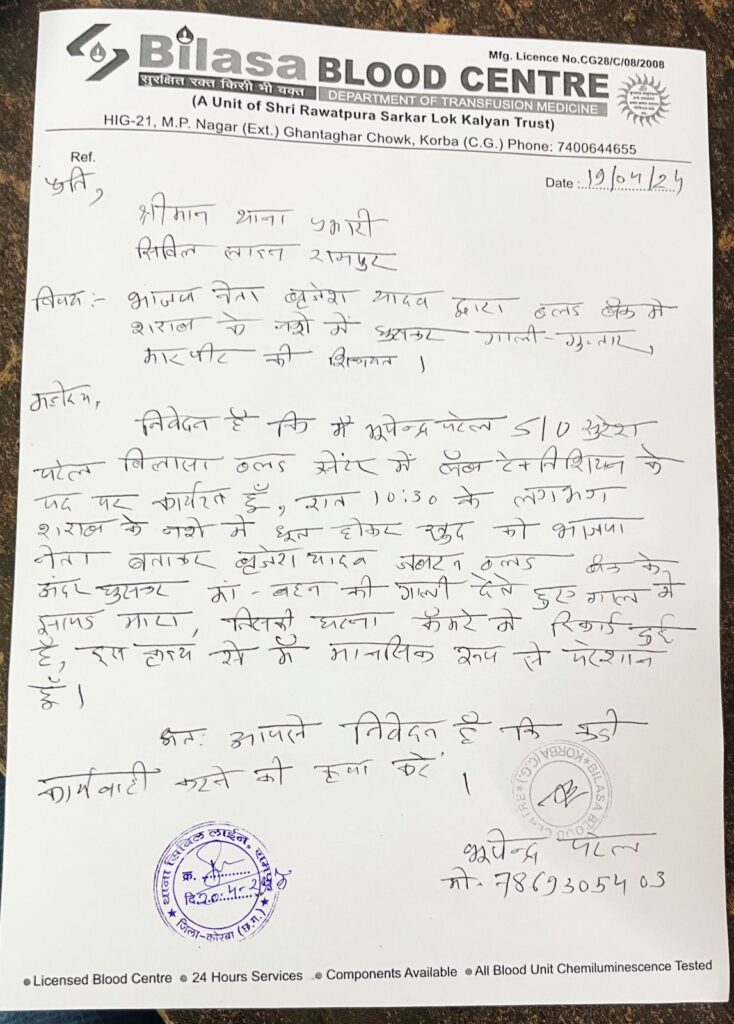 Mfg. Licence No.CG28/C/08/2008
Bilasa BLOOD CENTRE
सुरक्षित रक्त किसी भी वक्त
DEPARTMENT OF TRANSFUSION MEDICINE
(A Unit of Shri Rawatpura Sarkar Lok Kalyan Trust)
HIG-21, M.P. Nagar (Ext.) Ghantaghar Chowk, Korba (C.G.) Phone: 7400644655
Ref.
Date :. 19/04/24
प्रति,
श्रीमान थाना प्रभारी
सिविल लाइन रामपुर
विषय :- भाजपा नेता बृजेश यादव द्वारा ब्लड बैंक मे
शराब के नशे में घुसकर गाली-गुप्तार,
मारपीट की शिकायत ।
महोदय,
निवेदन है कि मैं भूपेन्द्र पटेल S/O सुरेश
पटेल बिलासा ब्लड सेंटर में लैब टेक्निशियन के
पद पर कार्यरत हूँ, रात 10:30 के लगभग
शराब के नशे मे धूत होकर खुद को भाजपा
नेता बताकर बृजेश यादव जबरन ब्लड बैंक के
अंदर घुसकर मां-बहन की गाली देते हुए गाल में
झापड मारा, जिसकी घटना कैमरे मे रिकार्ड हुई
है, इस कृत्य से मैं मानसिक रूप से परेशान
हूँ ।
अतः आपसे निवेदन है कि कडी
कार्यवाही करने की कृपा करें ।
BILASA BLOOD CENTRE ★ KORBA (C.G.) ★
भूपेन्द्र पटेल
मो- 7869305403
थाना सिविल लाईन, रामपुर
क्र.
दि. 20-4-24
जिला-कोरबा (छ.ग.)
● Licensed Blood Centre ● 24 Hours Services ● Components Available ● All Blood Unit Chemiluminescence Tested